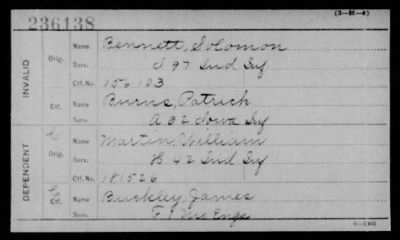 (3-H-4)
236138
INVALID
Orig.
Name Bennett, Solomon
Serv. I 97 Ind Inf
Ctf. No. 156103
Ctf.
Name Burns, Patrick
Serv. A 32 Iowa Inf
DEPENDENT
C Orig.
Name Martin, William
Serv. H 42 Ind Inf
Ctf. No. 181526
C Ctf.
Name Buckley, James
Serv. F 1 Engs